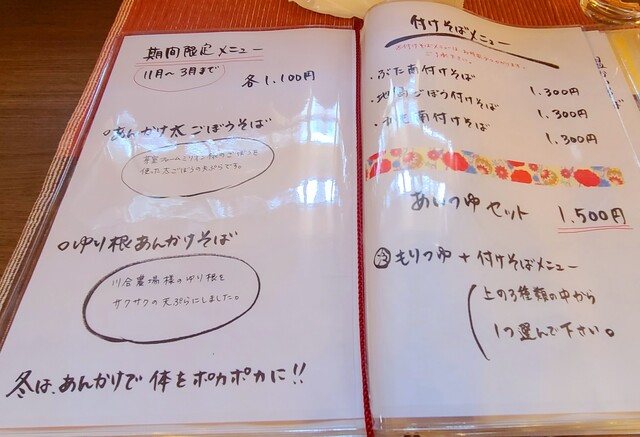 期間限定メニュー
11月〜3月まで
各1.100円
あんかけ太ごぼうそば
使った太ごぼうの天ぷらです。
ゆり根あんかけそば
川合農場様のゆり根を
サクサクの天ぷらにしました。
冬は、あんかけで体をポカポカに!!
付けそばメニュー
・ぶた南付けそば 1.300円
ごぼう付けそば 1.300円
南付けそば 1.300円
あいつゆセット 1.500円
もりつゆ+付けそばメニュー
上の3種類の中から
1つ選んで下さい。